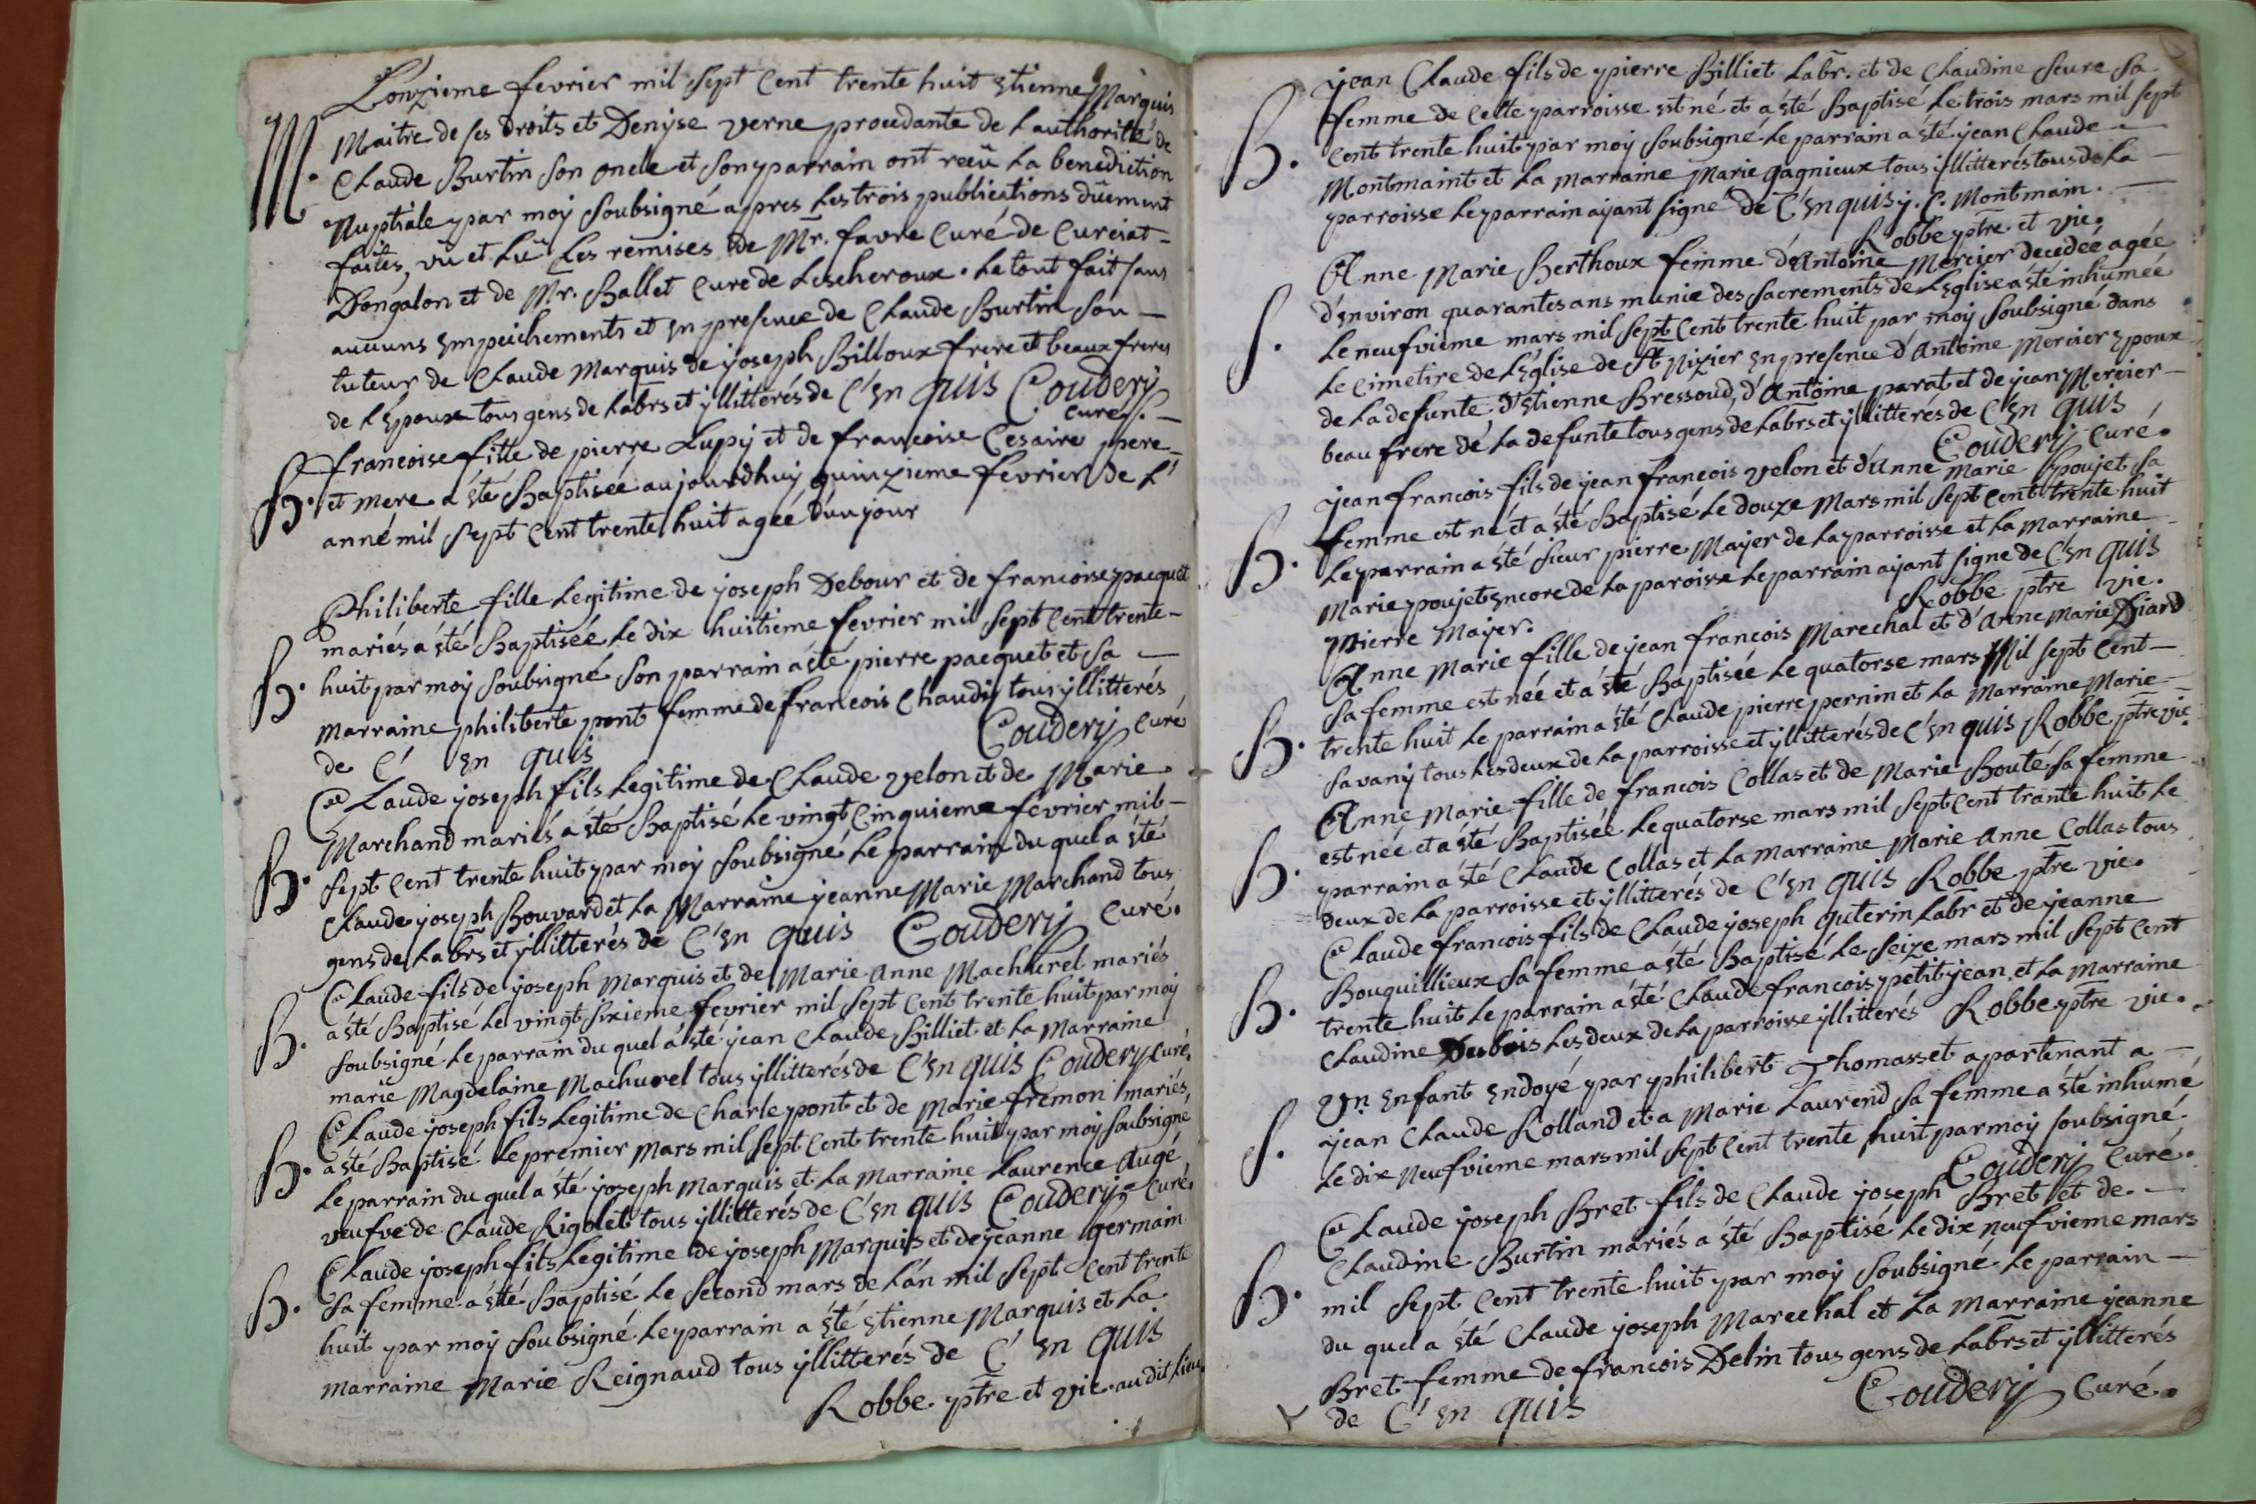 Lonzieme fevrier mil sept Cent trente huit Etienne Marquis
M. Maitre de ses droits et Denyse verne procedante de Lauthorité de
Claude Burtin son oncle et son parrain ont recü La benediction
Nuptiale par moy soubsigné apres Les trois publications düement
faites, vü et Lü Les remises de Mr. favre Curé de Curciat-
Dongalon et de Mr. Ballet Curé de Lescheroux. Le tout fait sans
aucuns Empeichements et En presence de Claude Burtin son
tuteur de Claude Marquis de joseph Billoux frere et beaux freres
de L'Epoux tous gens de Labrs et yllitterés de C'En quis Coudery
Curé.
francoise fille de pierre Lupy et de francoise Cesaire pere
B. et mere a été Baptisée aujourdhuy quinzieme fevrier de L'
anné mil sept Cent trente huit agée d'un jour
Philiberte fille Legitime de joseph Debour et de francoise pacquet
mariés a été Baptisée Le dix huitieme fevrier mil sept Cent trente-
B. huit par moy soubsigné son parrain a été pierre pacquet et sa
marraine philiberte pont femme de francois Chaudy tous yllitterés
de C' En quis Coudery Curé
Claude joseph fils Legitime de Claude velon et de Marie
Marchand mariés a été Baptisé Le vingt Cinquieme fevrier mil-
B. sept Cent trente huit par moy soubsigné Le parrain du quel a été
Claude joseph Bouvard et La Marraine jeanne Marie Marchand tous
gens de Labrs et yllitterés de C'En quis Coudery Curé.
Claude fils de joseph Marquis et de Marie Anne Machurel mariés
B. a été Baptisé Le vingt sixieme fevrier mil sept Cent trente huit par moy
soubsigné Le parrain du quel a été jean Claude Billiet et La Marraine
marie Magdelaine Machurel tous yllitterés de C'En quis Coudery Curé.
Claude joseph fils Legitime de Charle pont et de Marie fremon mariés
B. a été Baptisé Le premier Mars mil sept Cent trente huit par moy soubsigné
Le parrain du quel a été joseph Marquis et La Marraine Laurence Augé
veufve de Claude Rigolet tous yllitterés de C'En quis Coudery Curé.
Claude joseph fils Legitime de joseph Marquis et de jeanne germain
B. Sa femme a été Baptisé Le second mars de L'an mil sept Cent trente
huit par moy soubsigné Le parrain a été Etienne Marquis et La
marraine Marie Reignaud tous yllitterés de C' En quis
Robbe. ptre et vic. au dit Lieu
jean Claude fils de pierre Billiet Labr. et de Claudine seure sa
femme de Cette parroisse est né et a été Baptisé Le trois mars mil sept
B. Cent trente huit par moy soubsigné Le parrain a été jean Claude
Montmaint et La marraine Marie gagnieux tous yllitterés tous de La
parroisse Le parrain ayant signé de C'En quis j. C. Montmain.
Robbe ptre. et vic.
Anne Marie Berthoux femme d'Antoine Mercier decedée agée
d'Environ quarantes ans munie des sacrements de L'Eglise a été inhumée
S. Le neufvieme mars mil sept Cent trente huit par moy soubsigné dans
Le Cimetire de L'Eglise de St Nizier En presence d'Antoine Mercier Epoux
de La defunte d'Etienne Bressoud, d'Antoine parat et de jean Mercier
beau frere de La defunte tous gens de Labrs et yllitterés de C'En quis
Coudery Curé.
jean francois fils de jean francois velon et d'Anne Marie poujet sa
femme est né et a été Baptisé Le douze Mars mil sept Cent trente huit
B. Le parrain a été sieur pierre Mayer de La parroisse et La Marraine
Marie poujet Encore de La paroisse Le parrain ayant signé de C'En quis
Pierre Mayer. Robbe ptre vic.
Anne Marie fille de jean francois Marechal et d'Anne Marie Diard
Sa femme est née et a été Baptisée Le quatorse mars Mil sept Cent
B. trente huit Le parrain a été Claude pierre pernin et La Marraine Marie
Savany tous Les deux de La parroisse et yllitterés de C'En quis Robbe ptre vic.
Anne Marie fille de francois Collas et de Marie Bouté sa femme
est née et a été Baptisée Le quatorse mars mil sept Cent trante huit Le
B. parrain a été Claude Collas et La marraine Marie Anne Collas tous
deux de La parroisse et yllitterés de C'En quis Robbe ptre vic.
Claude francois fils de Claude joseph guterin Labr et de jeanne
Bouquillieux Sa femme a été Baptisé Le Seize mars mil sept Cent
B. trente huit Le parrain a été Claude francois petitjean et La Marraine
Claudine Dubois Les deux de La parroisse yllitterés Robbe ptre vic.
Un Enfant Endoyé par philibert Thomasset apartenant a
S. jean Claude Rolland et a Marie Laurend Sa femme a été inhumé
Le dix Neufvieme mars mil sept Cent trente huit par moy soubsigné.
Coudery Curé.
Claude joseph Bret fils de Claude joseph Bret et de
Claudine Burtin mariés a été Baptisé Le dix neufvieme mars
B. mil sept Cent trente huit par moy soubsigné Le parrain
du quel a été Claude joseph Marechal et La Marraine jeanne
Bret femme de francois Delin tous gens de Labrs et yllitterés
de C' En quis Coudery Curé.